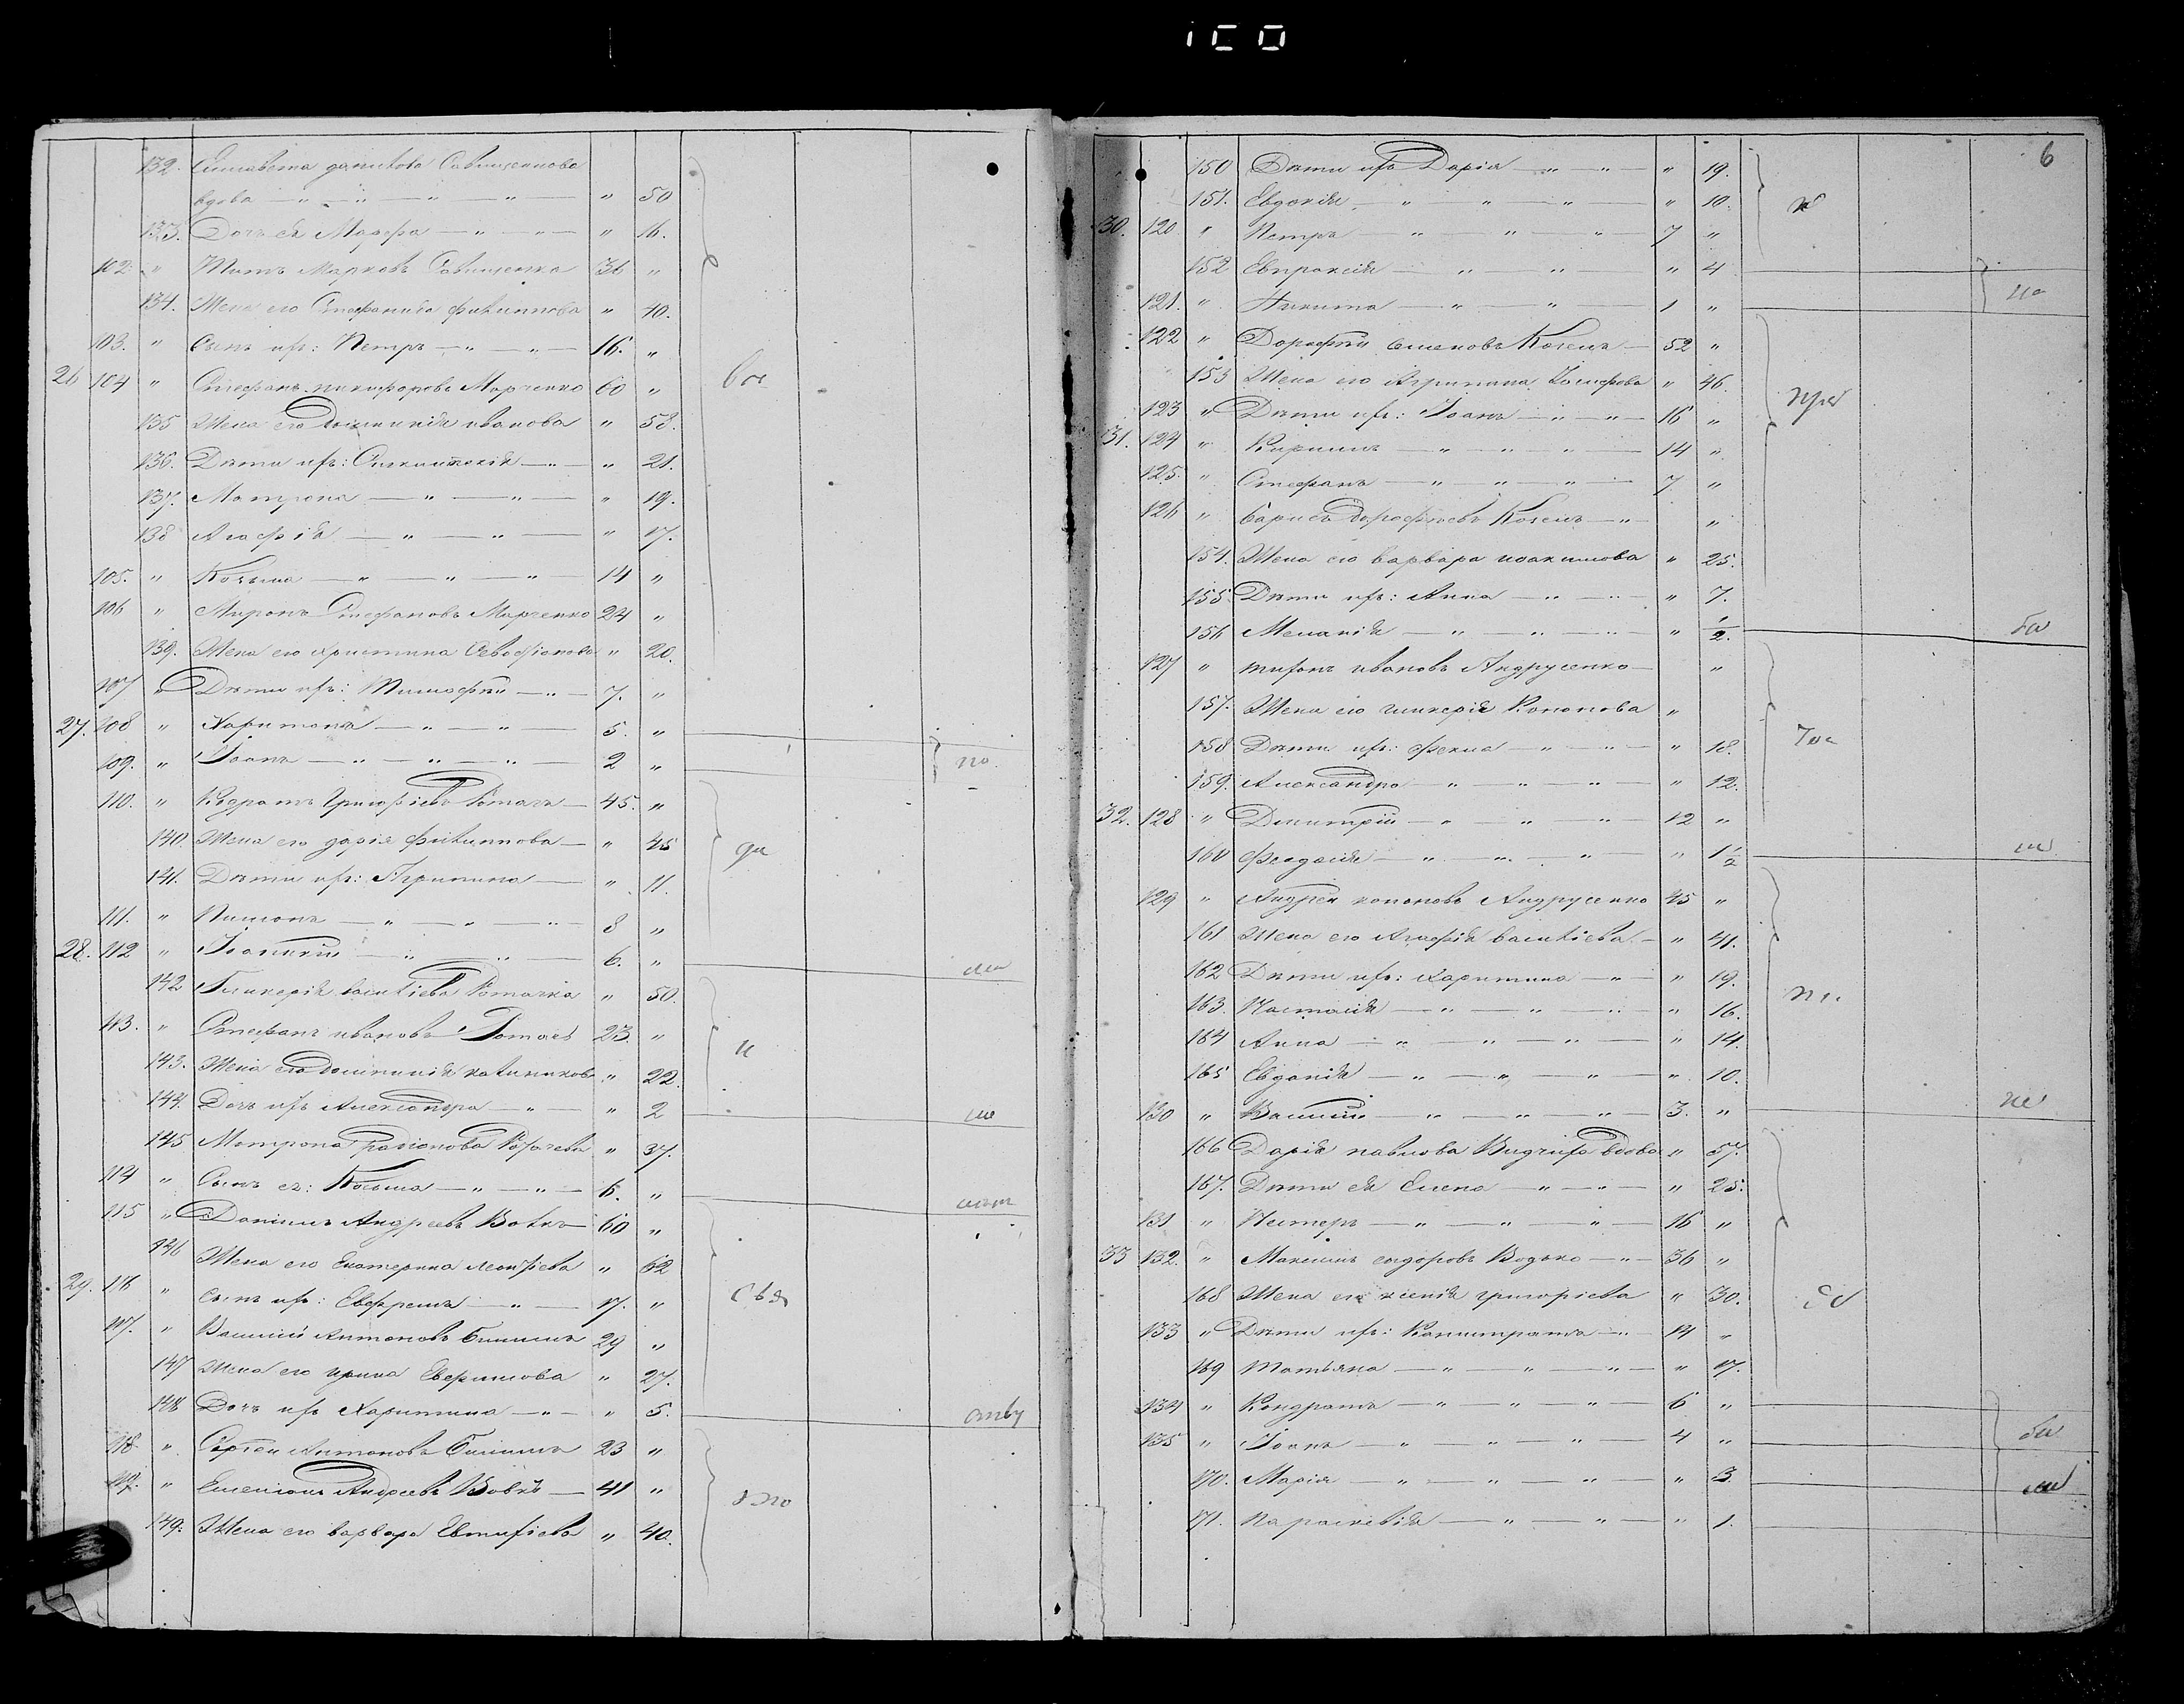 6
132. Елисавета данилова Савищенкова
вдова — " — " — " — " — " 50
133. Дочь ея Марфа — " — " — " 16.
102. " Титъ Марковъ Савищенко 36 "
134. Жена его Стефанида филиппова " 40.
103. " Сынъ ихъ: Петръ — " — " — 16. "
26 104 " Стефанъ никифоровъ Марченко 60 "
вос
135 Жена его Домникія иванова " 58.
136. Дѣти ихъ: — " — " 21.
137. Матрона — " — " — " 19.
138 Агафія — " — " — " 17.
105. " Козьма — " — " — " — 14 "
106 " Миронъ Стефановъ Марченко 24 "
139. Жена его христина " 20.
107 " Дѣти ихъ: Тимофѣй — " — 7. "
27. 108 " Харитонъ — " — " — 5. "
109. " Іоанъ — " — " — " 2 "
по.
110. " Кодратъ Григоріевъ 45. "
140. Жена его дарія филиппова — " 45
ди
141. Дѣти ихъ: Агрипина — " 11.
111. " Пименъ — " — " — " 8 "
28. 112 " Іоаникій — " — " — 6. "
142 Гликерія василіева " 50.
113. " Стефанъ ивановъ 23. "
и
143. Жена его домникія калиникова " 22.
144. Дочь ихъ Александра — " — " 2
145 Матрона радіонова " 37.
114 " Сынъ ея: Козьма — " — " — 6. "
115 " Даніилъ Андреевъ Вовкъ — 60 "
146 Жена его Екатерина леонтіева " 62
29. 116 " Сынъ ихъ: Евфремъ — " — 17. "
свя
117. " Василій Антоновъ 29 "
147 Жена его ирина Евфимова " 27.
148 Дочь ихъ Харитина — " — " 5.
118. " Сергѣй Антоновъ 23 "
117. " Андреевъ Вовкъ — 41 "
149. Жена его варвара Евтихіева " 40.
150 Дѣти ихъ Дарія — " — " — " 19.
151. Евдокія — " — " — " — " 10.
30. 120 " Петръ — " — " — " — 7 "
152 Евпраксія — " — " — " 4
121. " Никита — " — " — 1 "
на
122 " Дорофѣй семеновъ Козелъ — 52 "
153 Жена его Агрипина Іосифова " 46.
123 " Дѣти ихъ: Іоанъ — " — " — 16 "
31. 124 " Кирилъ — " — " — " — 14 "
125. " Стефанъ — " — " — " — 7. "
126 " Борисъ Дорофѣевъ Козелъ — " "
154. Жена его варвара иоакимова " 25.
155. Дѣти ихъ: Анна — " — " — " 7.
156 Меланія — " — " — " — " 1/2.
127 " тихонъ ивановъ Андрусенко — "
157. Жена его гликерія Кононова "
158 Дѣти ихъ: фекла — " — " — " 18.
159. Александра — " — " — " — " 12.
32. 128 " Димитрій — " — " — " — 12 "
160 феодосія — " — " — " " 1 1/2
129 " Андрей кононовъ Андрусенко 45 "
161 Жена его Агафія василіева — " 41.
162 Дѣти ихъ: Харитина — " — " 19.
163. Настасія — " — " — " — " 16.
164 Анна — " — " — " — " 14.
165 Евдокія — " — " — " — " 10.
130 " Василій — " — " — " — 3. "
166 Дарія павлова вдова " 57.
167. Дѣти ея Елена — " — " — " 25.
131 " Нестеръ — " — " — " — 16 "
33 132. " Максимъ сидоровъ 36 "
168 Жена его ксенія григоріева " 30.
133 " Дѣти ихъ: Калистратъ — " — 14 "
169 Татьяна — " — " — " — " 17.
134 " Кондратъ — " — " — " — 6 "
135 " Іоанъ — " — " — " — 4 "
170. Марія — " — " — " — " 3.
171. Параскевія — " — " — " 1.